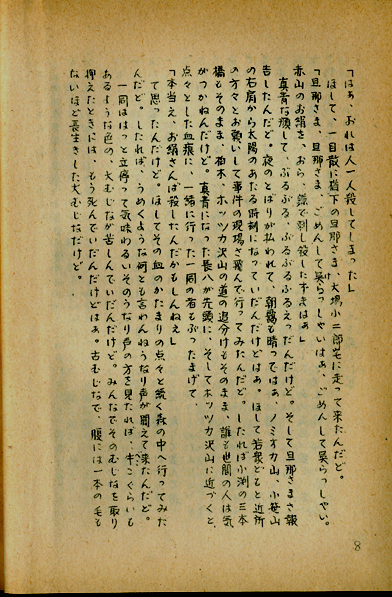 「はぁ、おれは人一人殺してしまった」
ほして、一目散に嶽下の旦那さま、大場小二郎宅に走って来たんだど。
「旦那さま、旦那さま、ごめんして呉らっしゃいはぁ、ごめんして呉らっしゃい。
赤山のお絹を、おら、鎌で刺し殺したすまはぁ」
真青な顔して、ぶるぶる、ぶるぶるふるえったんだけど。そして旦那さまさ報
告したんだど。夜のとばりが払われて、朝霧も晴ってはぁ、ノミオカ山、小笹山
の右肩から太陽のあたる時刻になっていだんだけどはぁ。ほして若衆どもと近所
の方々とお願いして事件の現場さ飛んで行ってみたんだど。したれば小渕の三本
橋もそのまま、柏木、ホッツカ沢山の道の追分けもそのまま、誰も世間の人は気
がつかねんだけど。真青になった長八が先頭に、そしてホッツカ沢山に近づくと、
点々とした血痕に、一緒に行った一同の者もぶったまげて、
「本当え、お絹さんば殺したんだかもしんねぇ」
て思ったんだけど。ほしてその血のかたまりの点々と続く森の中へ行ってみた
んだど。したれば、うめくような何とも言わんねうなり声が聞えて来たんだど。
一同ははっと立停って気味わるいそのうなり声の方を見たれば、牛こぐらいも
あるような色の、大むじなが苦しんでいだんだけど。みんなでそのむじなを取り
押えたときには、もう死んでいだんだけどはぁ。古むじなで、腹には一本の毛も
ないほど長生きした大むじなだけど。
8